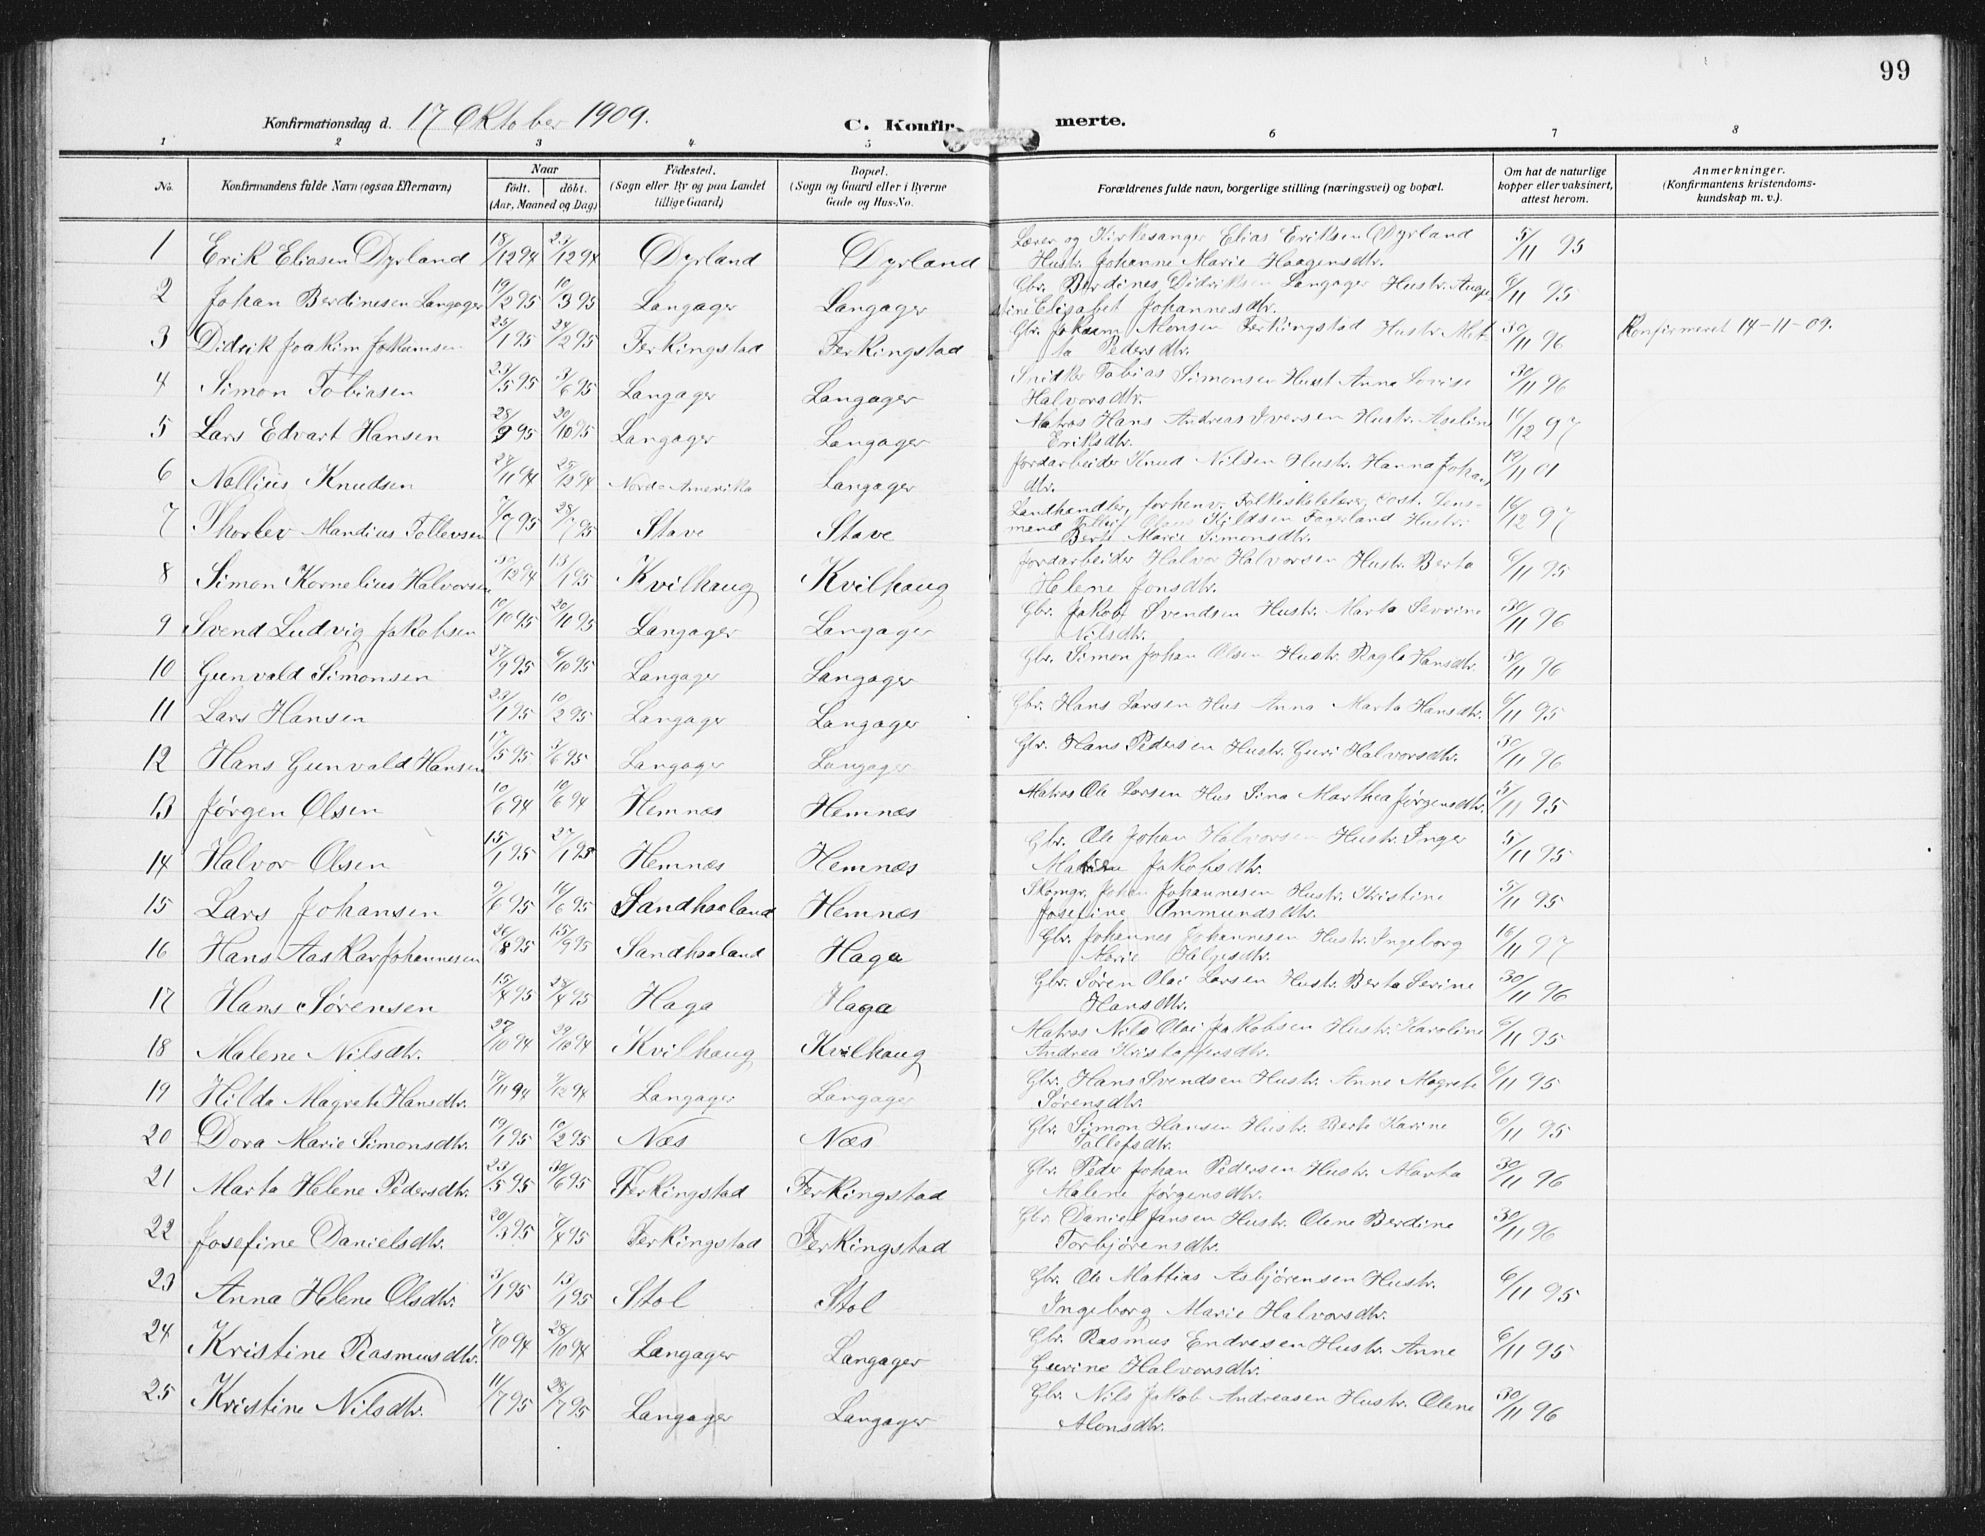 99
Konfirmationsdag d. 17 Oktober 1909. C. Konfir- merte.
1 2 3 4 5 6 7 8
No. Konfirmandens fulde Navn (ogsaa Efternavn) Naar født. døbt. (Aar, Maaned og Dag) Fødested. (Sogn eller By og paa Landet tillige Gaard) Bopæl. (Sogn og Gaard eller i Byerne Gade og Hus-No. Forældrenes fulde navn, borgerlige stilling (næringsvei) og bopæl. Om hat de naturlige kopper eller vaksinert, attest herom. Anmerkninger. (Konfirmantens kristendoms- kundskap m. v.).
1 Erik Eliasen Dyrland 18/12 94 23/12 94 Dyrland Dyrland Lærer og Kirkesanger Elias Eriksen Dyrland 5/11 95
Hustr. Johanne Marie Haagensdtr.
2 Johan Berdinesen Langager 19/2 95 10/3 95 Langager Langager Gbr. Berdines Didriksen Langager Hustr. Augu- 6/11 95
stine Elisabet Johannesdtr.
3 Didrik Joakim Jokumsen 25/1 95 24/2 95 Ferkingstad Ferkingstad Gbr. Jokum Monsen Ferkingstad Hustr. Met- 30/11 96 Konfirmeret 14-11-09.
ta Pedersdtr.
4 Simon Tobiasen 23/5 95 3/6 95 Langager Langager Snidker Tobias Simonsen Hust Anna Lovise 30/11 96
Halvorsdtr.
5 Lars Edvart Hansen 28/9 95 20/10 95 Langager Langager Matros Hans Andreas Iversen Hustr. Aseline 16/12 97
Eriksdtr.
6 Nellius Knudsen 27/11 94 25/12 94 Nord Amerika Langager Jordarbeider Knud Nilsen Hustr. Hanna Johan 19/11 01
dtr.
7 Thorlev Mandius Tollevsen 7/7 95 28/7 95 Stave Stave Landhandler, forhenv. Folkeskolelærer, Lens- 16/12 97
mand Olaus Kjeldsen Fagerland Hustr.
Berte Marie Simonsdtr.
8 Simon Kornelius Halvorsen 30/12 94 13/1 95 Kvilhaug Kvilhaug Jordarbeider Halvor Halvorsen Hustr. Berta 6/11 95
Helene Jonsdtr.
9 Svend Ludvig Jakobsen 10/10 95 20/10 95 Langager Langager Gbr. Jakob Svendsen Hustr. Marta Sevrine 30/11 96
Nilsdtr.
10 Gunvald Simonsen 27/9 95 6/10 95 Langager Langager Gbr. Simon Johan Olsen Hustr. Ragla Hansdtr. 30/11 96
11 Lars Hansen 23/1 95 10/2 95 Langager Langager Gbr. Hans Larsen Hus Anna Marta Hansdtr. 6/11 95
12 Hans Gunvald Hansen 17/5 95 3/6 95 Langager Langager Gbr. Hans Pedersen Hustr. Guri Halvorsdtr. 30/11 96
13 Jørgen Olsen 10/6 94 10/6 94 Hemnes Hemnes Matros Ole Larsen Hus Sina Marthea Jørgensdtr. 5/11 95
14 Halvor Olsen 15/1 95 27/1 95 Hemnes Hemnes Gbr. Ole Johan Halvorsen Hustr. Inger 5/11 95
Jakobsdtr.
15 Lars Johansen 9/6 95 16/6 95 Sandhaaland Hemnes Skomgr. Johan Johannesen Hustr. Kristine 5/11 95
Josefine Ommundsdtr.
16 Hans Aaskar Johannesen 26/8 95 15/9 95 Sandhaaland Haga Gbr. Johannes Johannesen Hustr. Ingeborg 16/11 97
Marie Helgesdtr.
17 Hans Sørensen 15/4 95 28/4 95 Haga Haga Gbr. Søren Olai Larsen Hustr. Berta Serine 30/11 96
Hansdtr.
18 Malene Nilsdtr. 27/10 94 29/10 94 Kvilhaug Kvilhaug Matros Nils Olai Jakobsen Hustr. Karoline 6/11 95
Andrea Kristoffersdtr.
19 Hilda Magrete Hansdtr. 17/11 94 9/12 94 Langager Langager Gbr. Hans Svendsen Hustr. Anne Magrete 6/11 95
Sørensdtr.
20 Dora Marie Simonsdtr. 19/1 95 10/2 95 Næs Næs Gbr. Simon Hansen Hustr. Berte Karine 6/11 95
Tollefsdtr.
21 Marta Helene Pedersdtr. 23/5 95 30/6 95 Ferkingstad Ferkingstad Gbr. Peder Johan Pedersen Hustr. Marta 30/11 96
Malene Jørgensdtr.
22 Josefine Danielsdtr. 20/3 95 7/4 95 Ferkingstad Ferkingstad Gbr. Daniel Jansen Hustr. Olene Berdine 30/11 96
Torbjørensdtr.
23 Anna Helene Olsdtr. 3/1 95 13/1 95 Stol Stol Gbr. Ole Mattias Asbjørensen Hustr. 6/11 95
Ingeborg Marie Halvorsdtr.
24 Kristine Rasmusdtr. 7/10 94 28/10 94 Langager Langager Gbr. Rasmus Endresen Hustr. Anne 6/11 95
Gurine Halvorsdtr.
25 Kristine Nilsdtr. 11/7 95 28/7 95 Langager Langager Gbr. Nils Jakob Andreasen Hustr. Olene 30/11 96
Monsdtr.